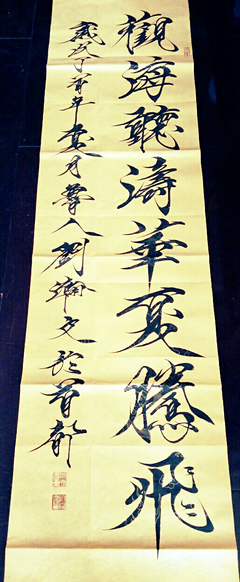 觀海聽濤華夏騰飛
歲次丁酉年夏月魯人劉瀚文於首都